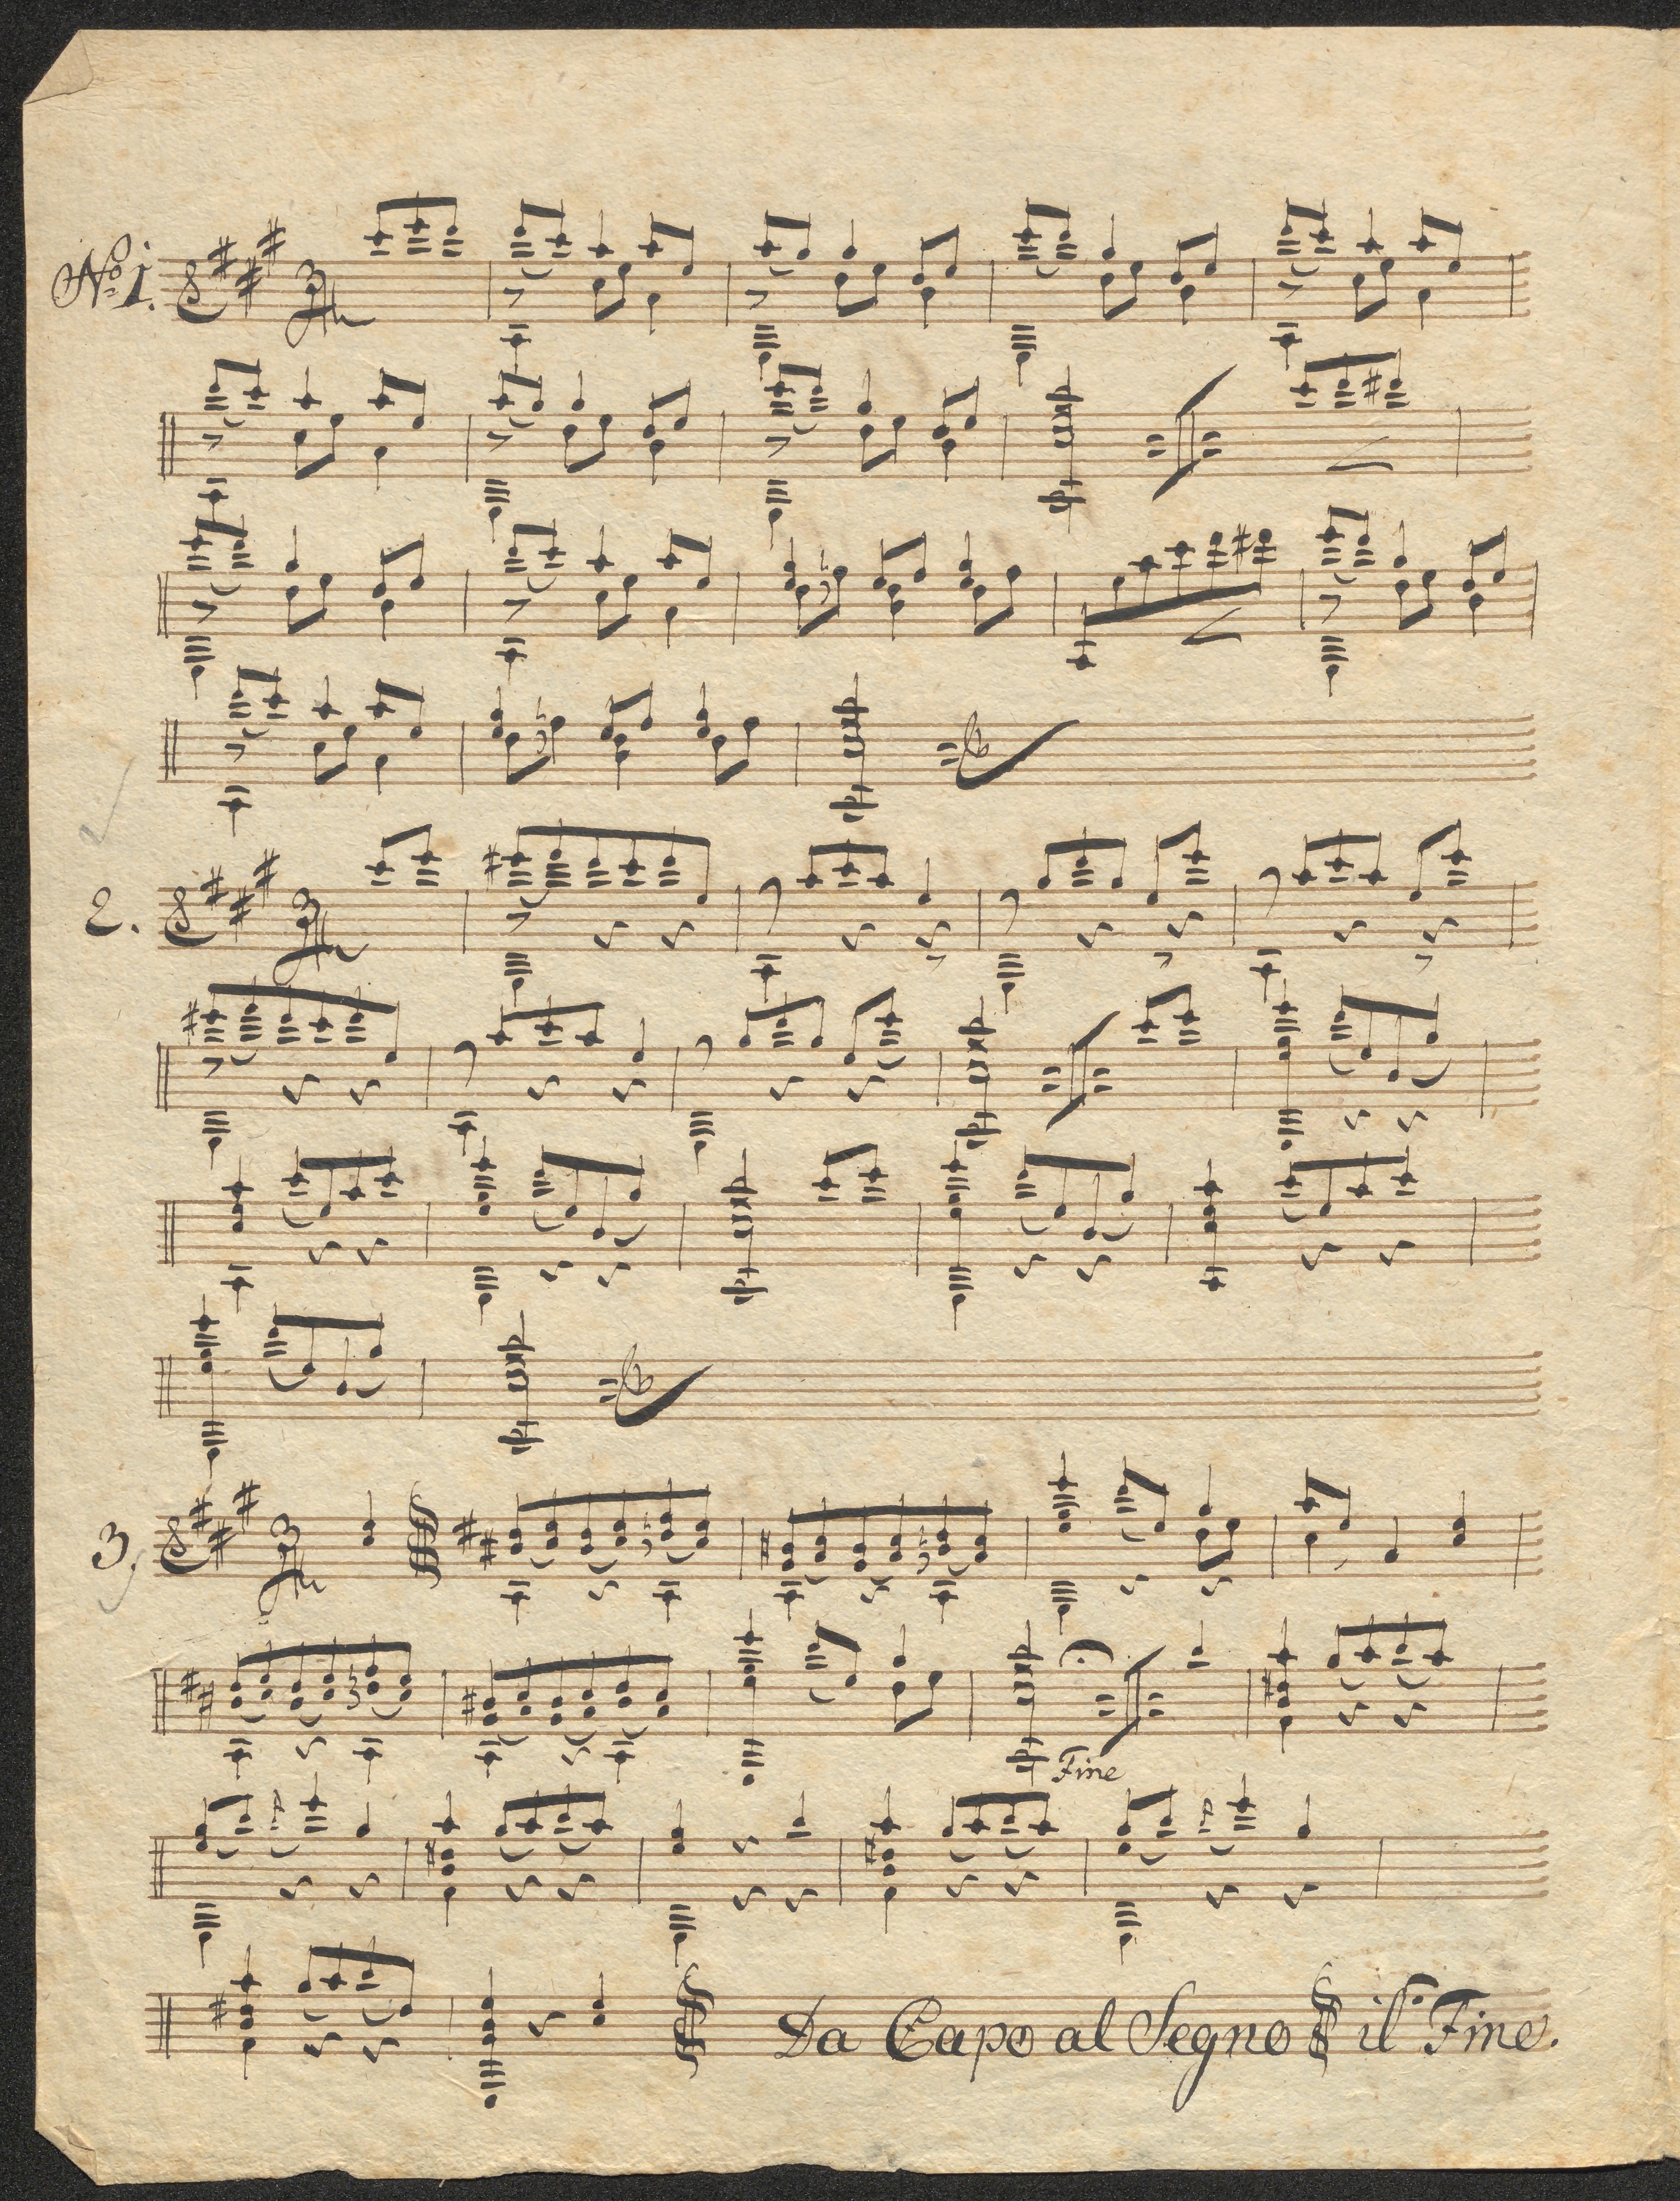 No 1.
3/4
2.
3/4
3,
3/4
Fine
Da Capo al Segno il Fine.